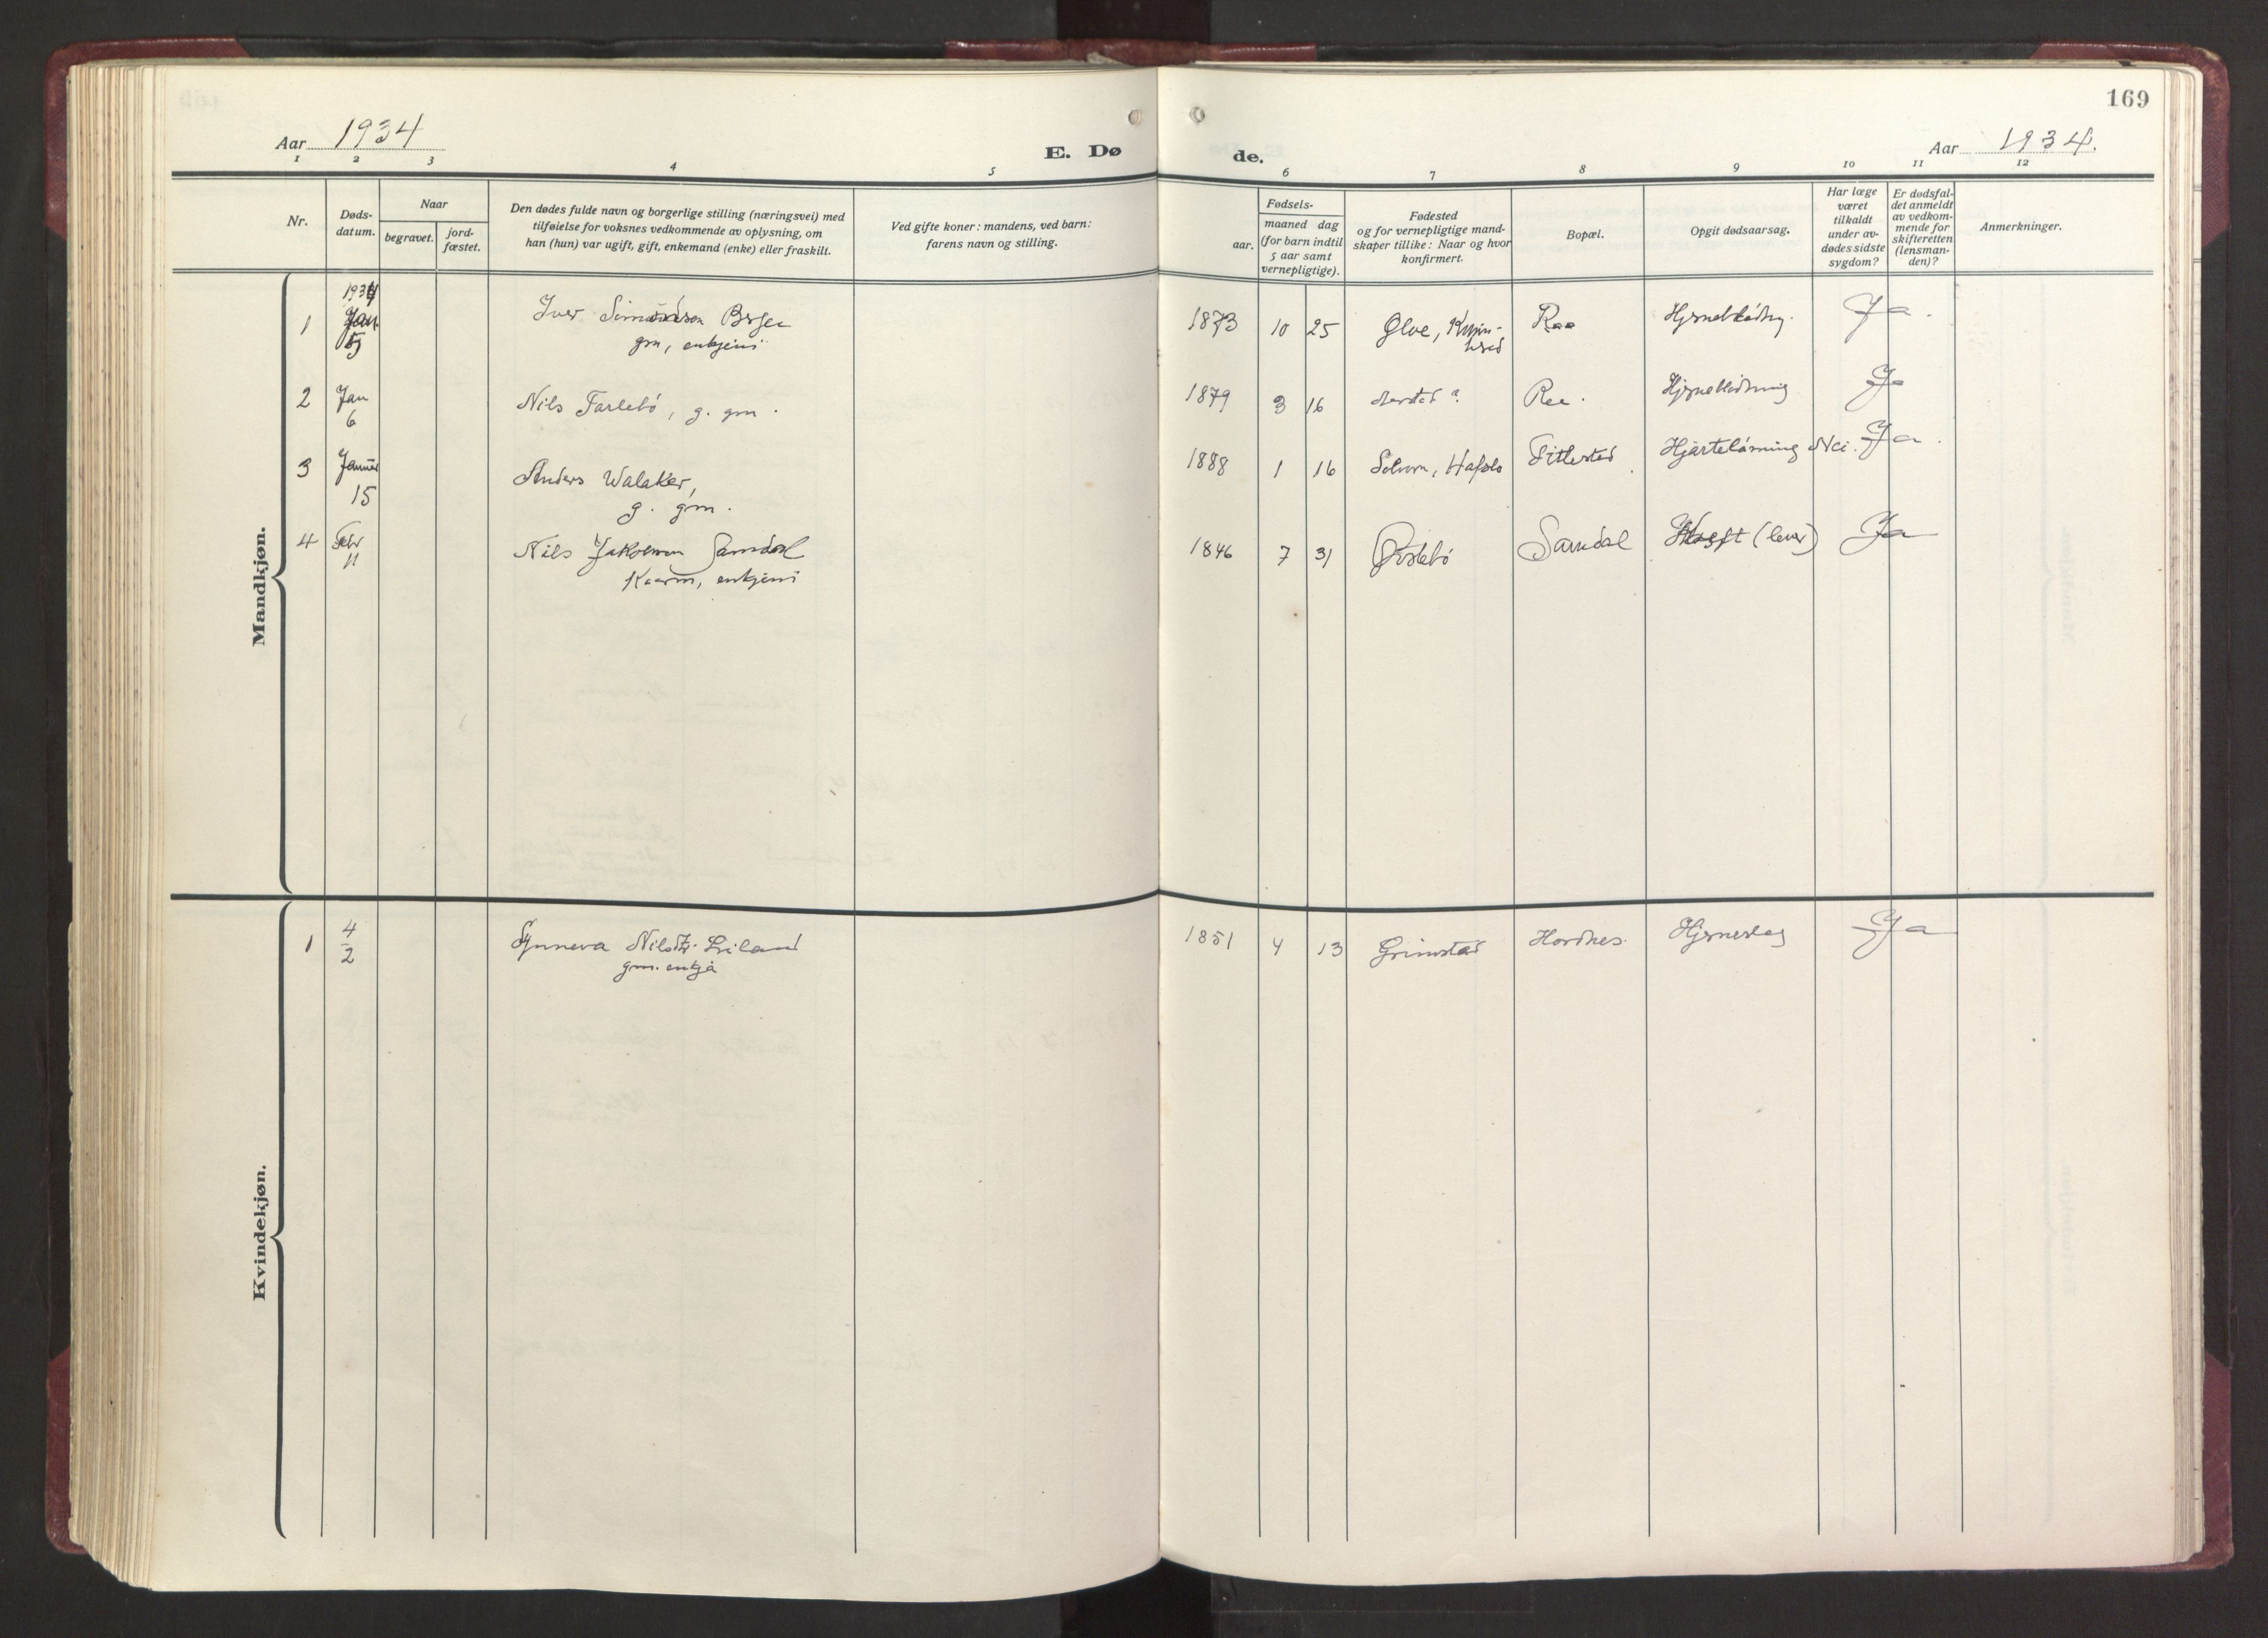 169
Aar 1934
E. Dø
de.
Aar 1934.
1 2 3 4 5 6 7 8 9 10 11 12
Nr.
Døds-
datum.
Naar
begravet.
jord-
fæstet.
Den dødes fulde navn og borgerlige stilling (næringsvei) med
tilføielse for voksnes vedkommende av oplysning, om
han (hun) var ugift, gift, enkemand (enke) eller fraskilt.
Ved gifte koner: mandens, ved barn:
farens navn og stilling.
Fødsels-
aar.
maaned dag
(for barn indtil
5 aar samt
vernepligtige).
Fødested
og for vernepligtige mand-
skaper tillike: Naar og hvor
konfirmert.
Bopæl.
Opgit dødsaarsag.
Har læge
været
tilkaldt
under av-
dødes sidste
sygdom?
Er dødsfal-
det anmeldt
av vedkom-
mende for
skifteretten
(lensman-
den)?
Anmerkninger.
Mandkjøn.
1934
1 Jan. 5 Iver Simonson 1873 10 25 Ølve, Raa Ja.
gm, enkjem
2 Jan 6 Nils Farlebó, g. gm. 1879 3 16 Raa. Hjernebládning Ja
3 Januar 15 Anders Walaker, 1888 1 16 Solvorn, Hafslo Tittlestad Hjarteláming Nei. Ja.
g. gm.
4 Febr 11 Nils Jakobson Samdal 1846 7 31 Øvstebó Samdal Kreft (lever) Ja
Kaarm, enkjem
Kvindekjøn.
1 4/2 Synneva Nilsdtr. Liland 1851 4 13 Grimstad Hordnes. Hjerneslag Ja
gm. enkja